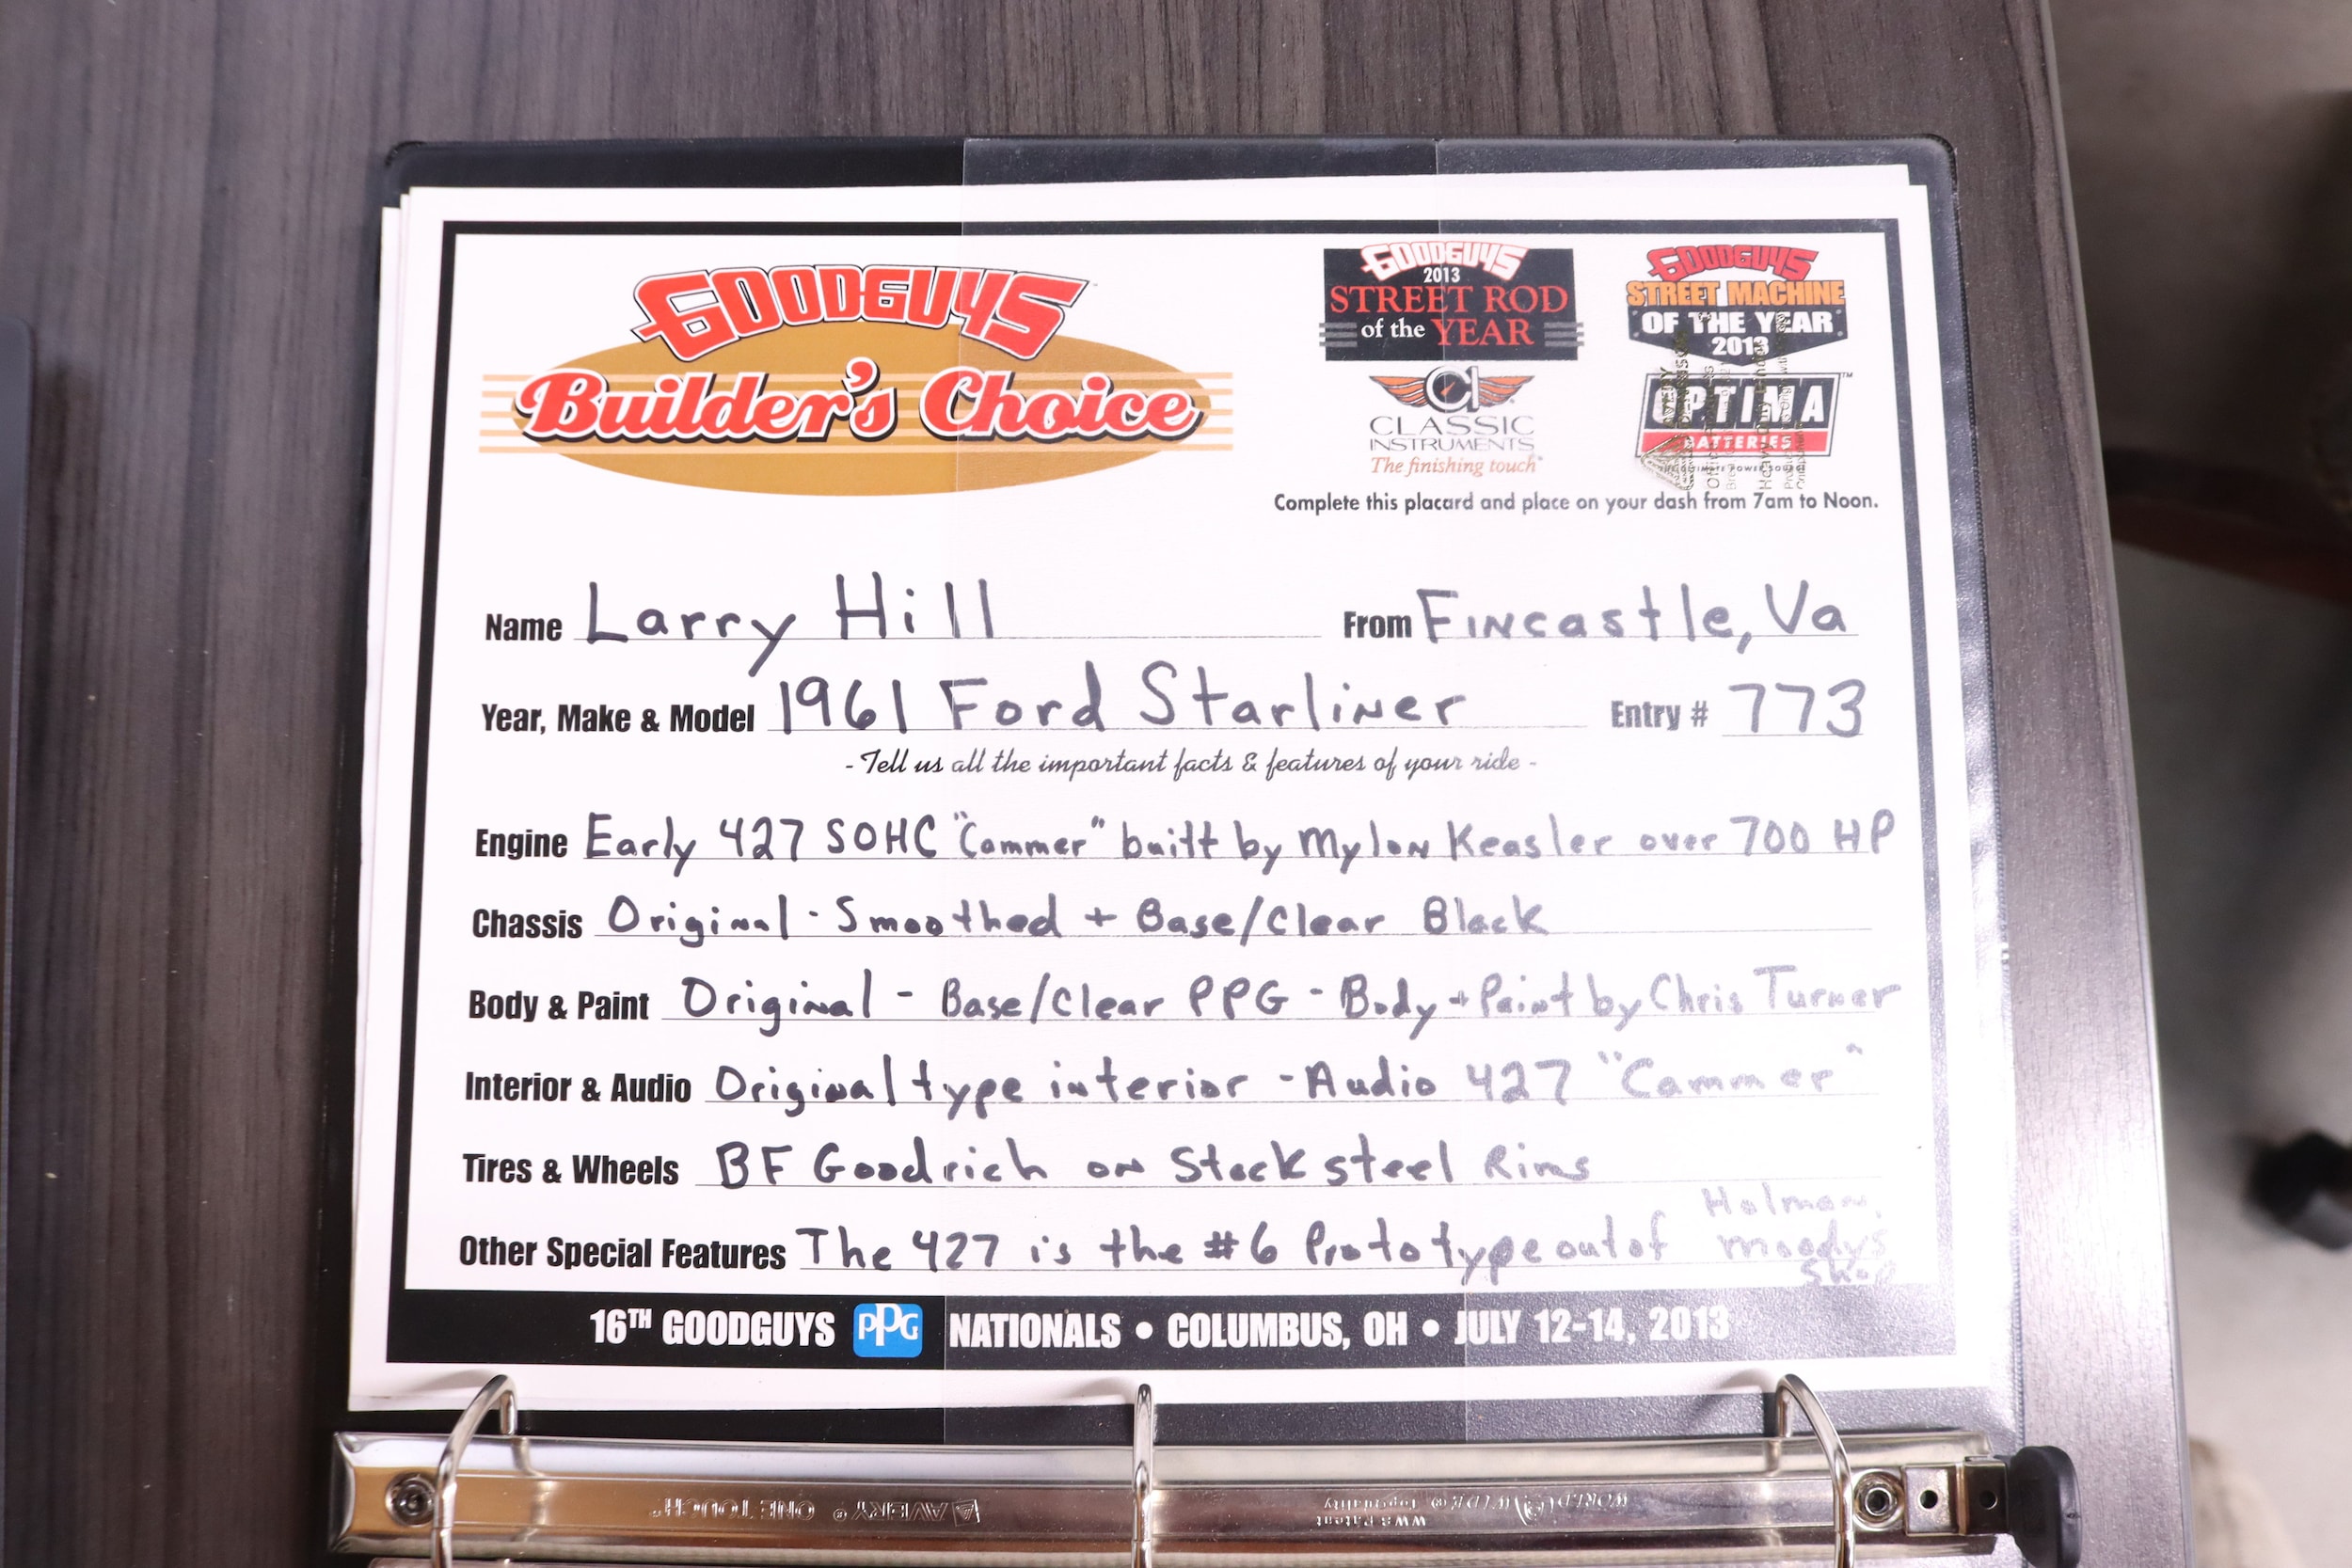 GOODGUYS
Builder's Choice
GOODGUYS
2013
STREET ROD
of the YEAR
CLASSIC
INSTRUMENTS
The finishing touch
GOODGUYS
STREET MACHINE
OF THE YEAR
2013
OPTIMA
BATTERIES
Complete this placard and place on your dash from 7am to Noon.
Name Larry Hill From Fincastle, Va
Year, Make & Model 1961 Ford Starliner Entry # 773
- Tell us all the important facts & features of your ride -
Engine Early 427 SOHC "Cammer" built by Mylon Keasler over 700 HP
Chassis Original - Smoothed + Base/Clear Black
Body & Paint Original - Base/Clear PPG - Body + Paint by Chris Turner
Interior & Audio Original type interior - Audio 427 "Cammer"
Tires & Wheels BF Goodrich on Stock steel Rims
Other Special Features The 427 is the #6 Prototype out of Holman, moodys Shop
16TH GOODGUYS PPG NATIONALS • COLUMBUS, OH • JULY 12-14, 2013
AVERY® ONE TOUCH™
WORLD WIDE® Top Quality
WWS Patent